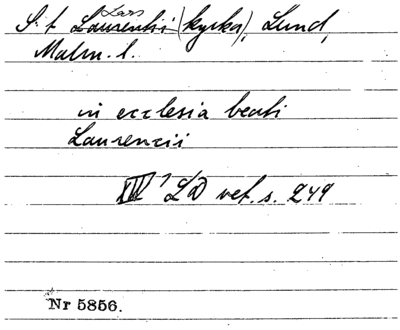 S:t Lars
Laurentii (kyrka), Lund,
Malm. l.
in ecclesia beati
Laurencii
XIV¹ LD vet. s. 249
Nr 5856.